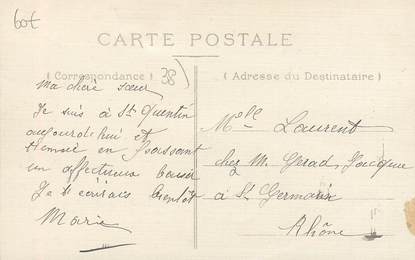 60f
CARTE POSTALE
( Correspondance )
38)
( Adresse du Destinataire )
Ma chère sœur
Je suis à St Quentin
aujourd'hui et
t'envoie en passant
un affectueux baiser
Je t'écrirais bientôt
Marie
Melle Laurent
chez M. Girad, Jacque
à St Germain
Rhône